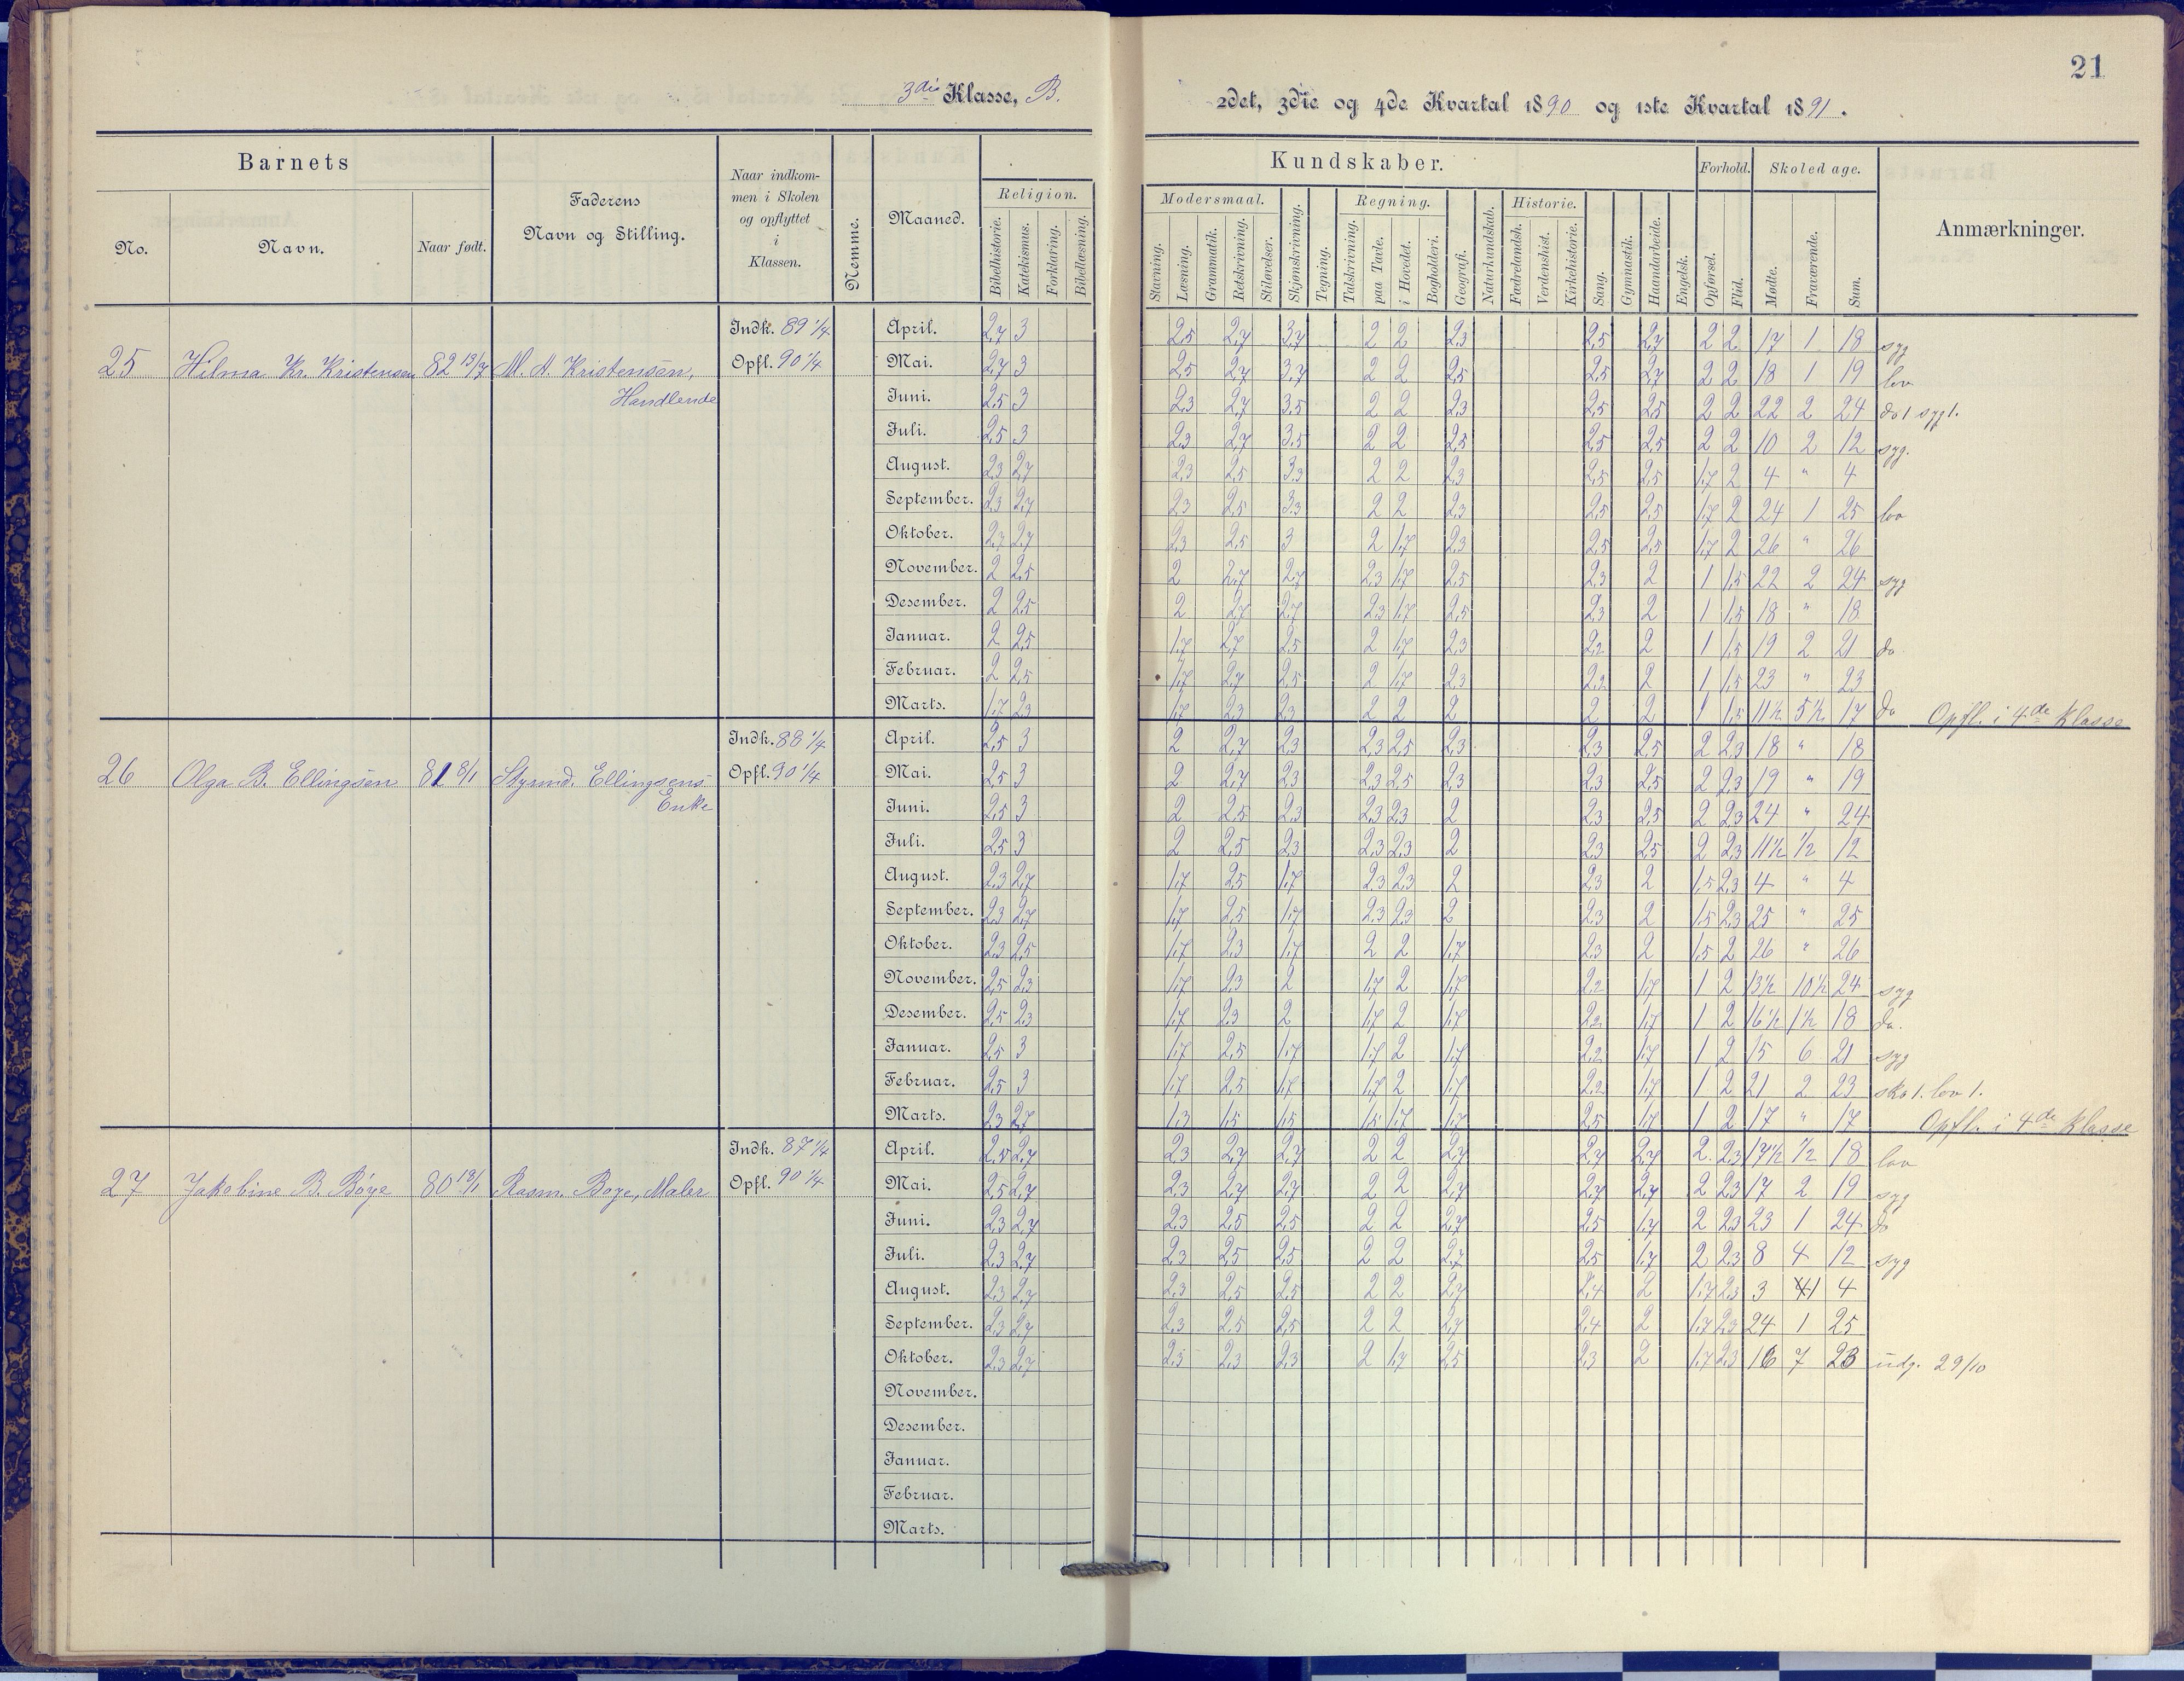 21
3die Klasse, B.
2det, 3die og 4de Kvartal 1890 og 1ste Kvartal 1891.
Barnets
No.
Navn.
Naar født.
Faderens
Navn og Stilling.
Naar indkom-
men i Skolen
og opflyttet
i
Klassen.
Nemme.
Maaned.
Religion.
Bibelhistorie.
Katekismus.
Forklaring.
Bibellæsning.
Kundskaber.
Modersmaal.
Stavning.
Læsning.
Grammatik.
Retskrivning.
Stiløvelser.
Skjønskrivning.
Tegning.
Regning.
Talskrivning.
paa Tavle.
i Hovedet.
Bogholderi.
Geografi.
Naturkundskab.
Historie.
Fædrelandsh.
Verdenshist.
Kirkehistorie.
Sang.
Gymnastik.
Haandarbeide.
Engelsk.
Forhold.
Opførsel.
Flid.
Skoledage.
Mødte.
Fraværende.
Sum.
Anmærkninger.
25 Hilma Kr. Kristensen 82 13/7 M. A. Kristensen,
Handlende
Indk. 89 1/4
Opfl. 90 1/4
April. 2,7 3 2,5 2,7 3,7 2 2 2,3 2,5 2,7 2 2 17 1 18 syg
Mai. 2,7 3 2,5 2,7 3,7 2 2 2,5 2,5 2,7 2 2 18 1 19 lov
Juni. 2,5 3 2,3 2,7 3,5 2 2 2,3 2,5 2,5 2 2 22 2 24 do 1 syg 1.
Juli. 2,5 3 2,3 2,7 3,5 2 2 2,5 2,5 2,5 2 2 10 2 12 syg.
August. 2,3 2,7 2,3 2,5 3,3 2 2 2,3 2,5 2,5 1,7 2 4 " 4
September. 2,3 2,7 2,3 2,5 3,3 2 2 2,3 2,5 2,5 1,7 2 24 1 25 lov
Oktober. 2,3 2,7 2,3 2,5 3 2 1,7 2,3 2,5 2,5 1,7 2 26 " 26
November. 2 2,5 2 2,7 2,7 2,3 1,7 2,5 2,3 2 1 1,5 22 2 24 syg
Desember. 2 2,5 2 2,7 2,7 2,3 1,7 2,5 2,3 2 1 1,5 18 " 18
Januar. 2 2,5 1,7 2,7 2,5 2 1,7 2,3 2,2 2 1 1,5 19 2 21 do
Februar. 2 2,5 1,7 2,7 2,5 2 1,7 2,3 2,2 2 1 1,5 23 " 23
Marts. 1,7 2,3 1,7 2,3 2,3 2 2 2 2 2 1 1,5 11½ 5½ 17 do Opfl. i 4de Klasse
26 Olga B. Ellingsen 81 8/1 Styrmd. Ellingsens
Enke
Indk. 88 1/4
Opfl. 90 1/4
April. 2,5 3 2 2,7 2,3 2,3 2,5 2,3 2,3 2,5 2 2,3 18 " 18
Mai. 2,5 3 2 2,7 2,3 2,3 2,5 2,3 2,3 2,5 2 2,3 19 " 19
Juni. 2,5 3 2 2,5 2,3 2,3 2,3 2 2,3 2,5 2 2,3 24 " 24
Juli. 2,5 3 2 2,5 2,3 2,3 2,3 2 2,3 2,5 2 2,3 11½ ½ 12
August. 2,3 2,7 1,7 2,5 1,7 2,3 2,3 2 2,3 2 1,5 2,3 4 " 4
September. 2,3 2,7 1,7 2,5 1,7 2,3 2,3 2 2,3 2 1,5 2,3 25 " 25
Oktober. 2,3 2,5 1,7 2,3 1,7 2 2 1,7 2,3 2 1,5 2 26 " 26
November. 2,5 2,3 1,7 2,3 2 1,7 2 1,7 2,2 1,7 1 2 13½ 10½ 24 syg
Desember. 2,5 2,3 1,7 2,3 2 1,7 2 1,7 2,2 1,7 1 2 16½ 1½ 18 do.
Januar. 2,5 3 1,7 2,5 1,7 1,7 2 1,7 2,2 1,7 1 2 15 6 21 syg
Februar. 2,5 3 1,7 2,5 1,7 1,7 2 1,7 2,2 1,7 1 2 21 2 23 sko 1. lov 1.
Marts. 2,3 2,7 1,3 1,5 1,5 1,5 1,7 1,7 2,5 1,7 1 2 17 " 17 Opfl. i 4de Klasse
27 Jakobine B. Bøye 80 13/1 Rasm. Boye, Maler
Indk. 87 1/4
Opfl. 90 1/4
April. 2,5 2,7 2,3 2,7 2,7 2 2 2,7 2,7 2,7 2 2,3 17½ ½ 18 lov
Mai. 2,5 2,7 2,3 2,7 2,7 2 2 2,7 2,7 2,7 2 2,3 17 2 19 syg
Juni. 2,3 2,7 2,3 2,5 2,5 2 2 2,7 2,5 1,7 2 2,3 23 1 24 do
Juli. 2,3 2,7 2,3 2,5 2,5 2 2 2,7 2,5 1,7 2 2,3 8 4 12 syg
August. 2,3 2,7 2,3 2,5 2,5 2 2 2,7 2,4 2 1,7 2,3 3 1 4
September. 2,3 2,7 2,3 2,5 2,5 2 2 2,7 2,4 2 1,7 2,3 24 1 25
Oktober. 2,3 2,7 2,3 2,3 2,3 2 1,7 2,5 2,3 2 1,7 2,3 16 7 23 udg. 29/10
November.
Desember.
Januar.
Februar.
Marts.